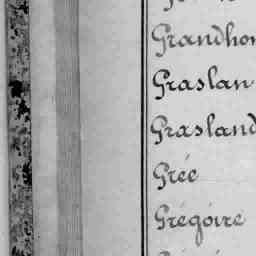 Grandhom
Graslan
Grasland
Grée
Grégoire